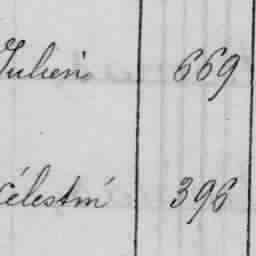 Julien 669
Célestin 396